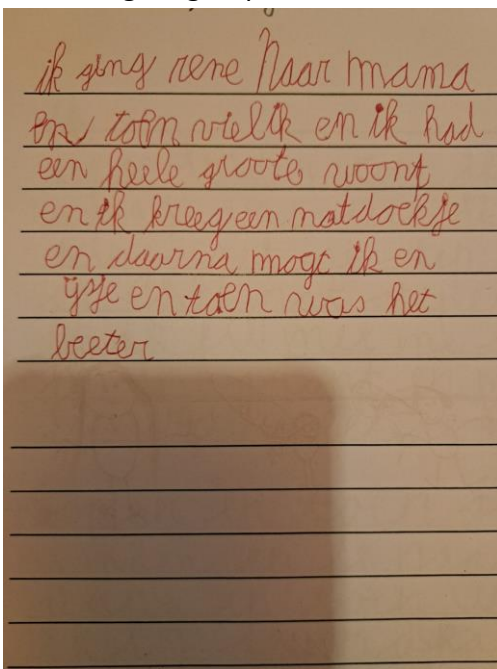 ik ging rene Naar mama
en toen viel ik en ik had
een heele groote woont
en ik kreeg een nat doekje
en daarna mogt ik en
ijsje en toen was het
beeter